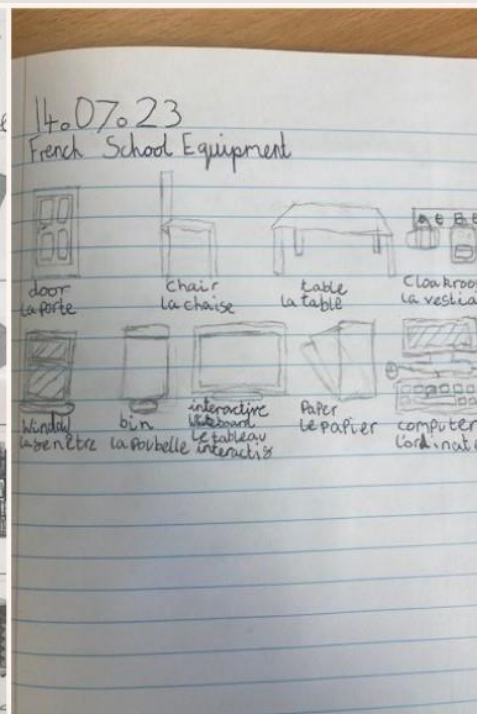 14.07.23
French School Equipment
door
la porte
chair
la chaise
table
la table
Cloakroo
la vestia
Window
la fenêtre
bin
la poubelle
interactive
whiteboard
le tableau
interactif
Paper
le papier
computer
l'ordinate